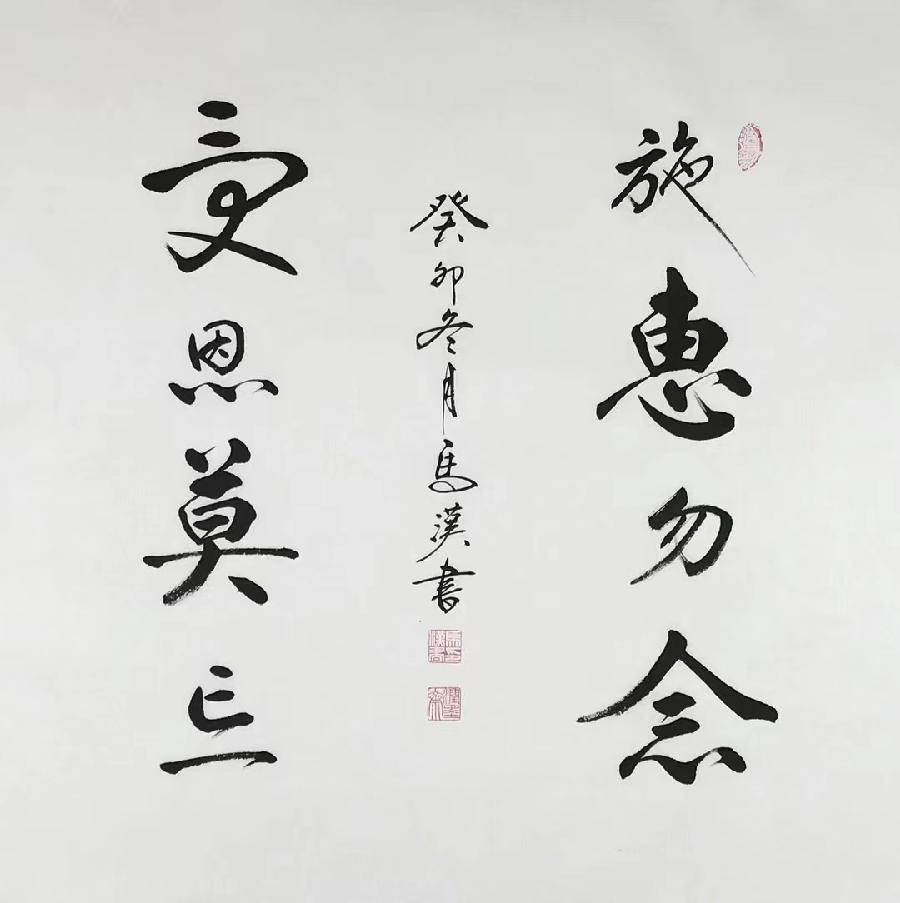 施惠勿念
受恩莫忘
癸卯冬月馬漢書